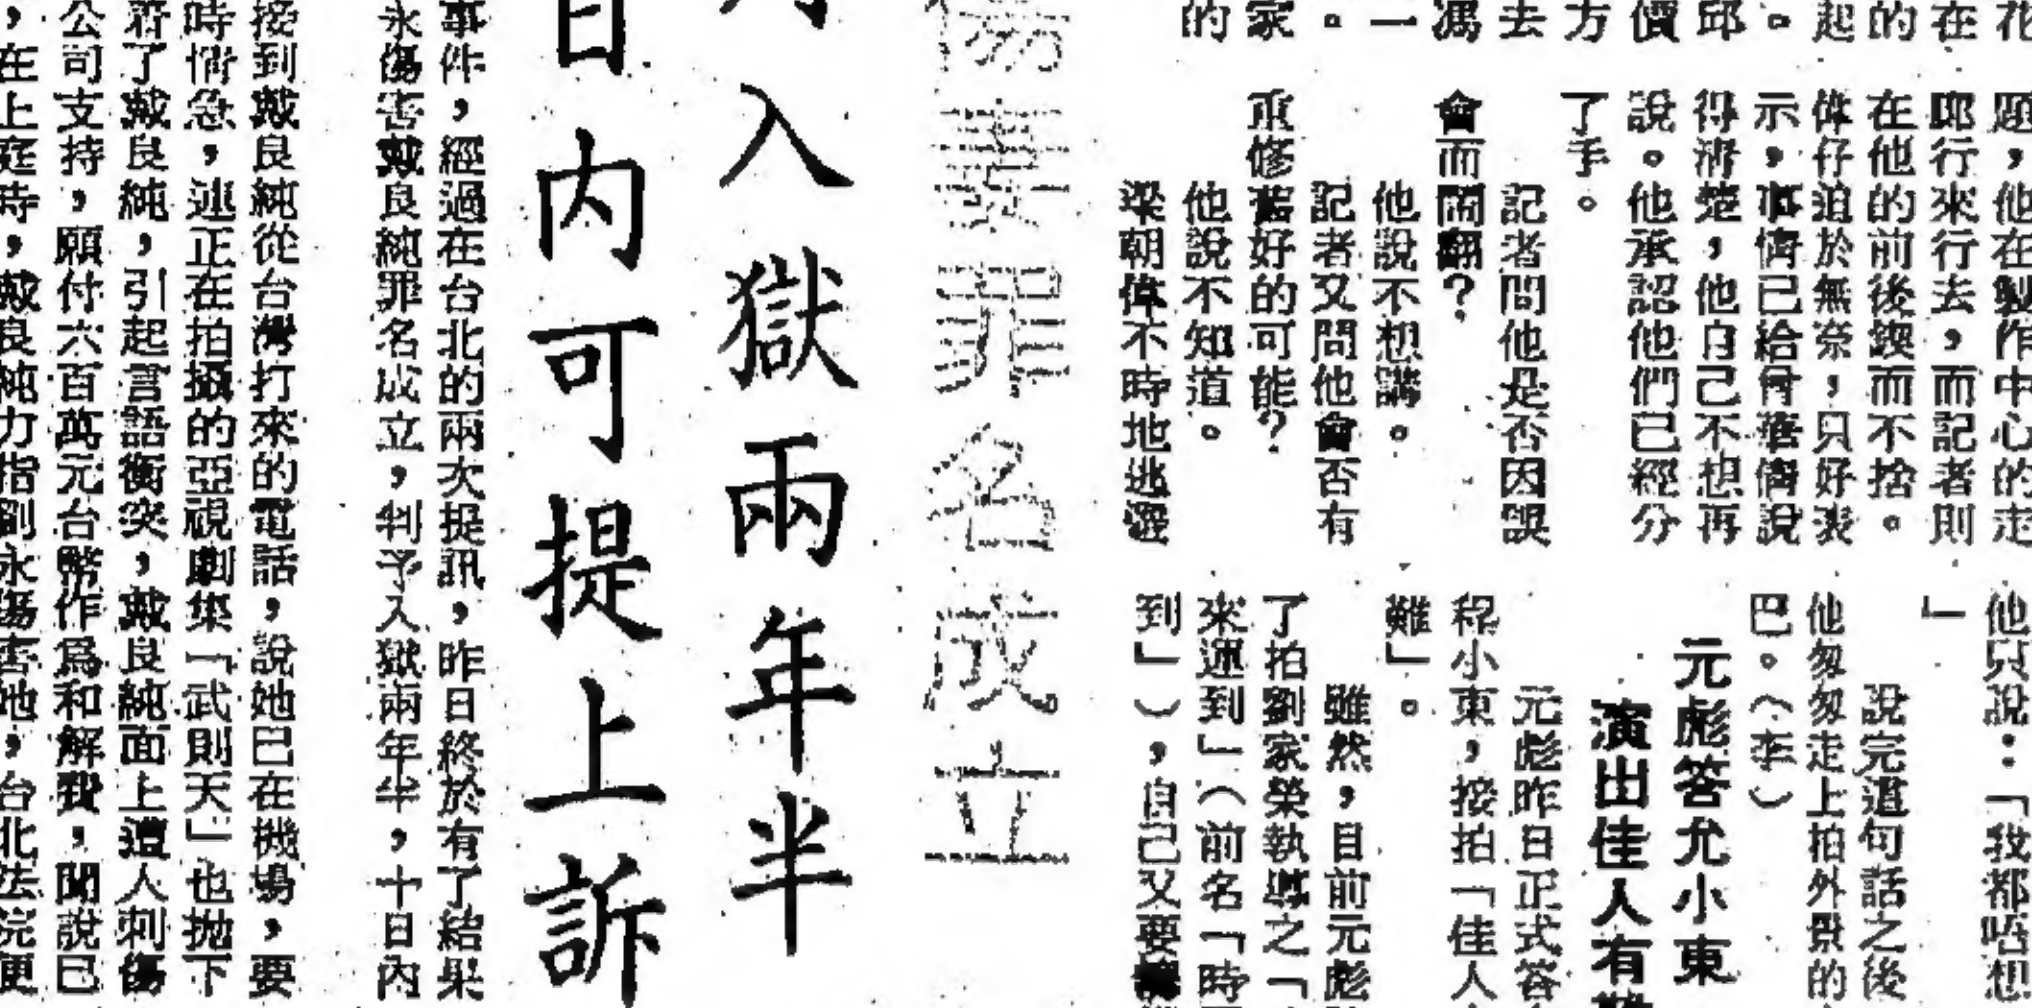 花
在
的
起
。
邱
價
方
去
馮
一
。
家
的
題，他在製作中心的走
郎行來行去，而記者則
在他的前後鍥而不捨。
偉仔迫於無奈，只好表
示，事情已給曾華倩說
得清楚，他自己不想再
說。他承認他們已經分
了手。
記者問他是否因誤
會而鬧翻？
他說不想講。
記者又問他會否有
重修舊好的可能？
他說不知道。
梁朝偉不時地逃避
他只說：「我都唔想
」
說完這句話之後
他匆匆走上拍外景的
巴。（李）
元彪答允小東
演出佳人有難
元彪昨日正式答
程小東，接拍「佳人
難」。
雖然，目前元彪
了拍劉家榮執導之「
來運到」（前名「時
到」），自己又要
傷害罪名成立
入獄兩年半
日內可提上訴
事件，經過在台北的兩次提訊，昨日終於有了結果
永傷害戴良純罪名成立，判予入獄兩年半，十日內
接到戴良純從台灣打來的電話，說她已在機場，要
時情急，連正在拍攝的亞視劇集「武則天」也拋下
着了戴良純，引起言語衝突，戴良純面上遭人刺傷
公司支持，願付六百萬元台幣作為和解費，聞說已
，在上庭時，戴良純力指劉永傷害她，台北法院便